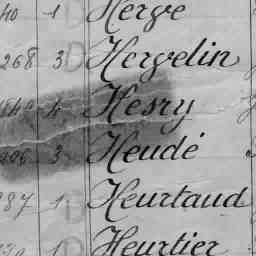 40 1 D Herve
268 3 D Hervelin
4 Hesry
3 Heudé
287 1 D Heurtaud
1 D Heurtier